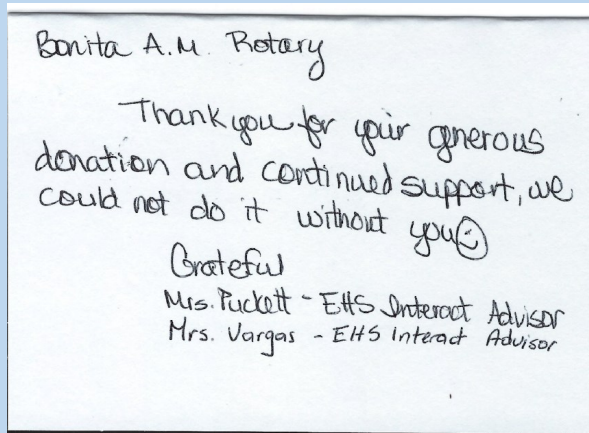 Bonita A.M. Rotary
Thank you for your generous
donation and continued support, we
could not do it without you☺
Grateful
Mrs. Puckett - EHS Interact Advisor
Mrs. Vargas - EHS Interact Advisor